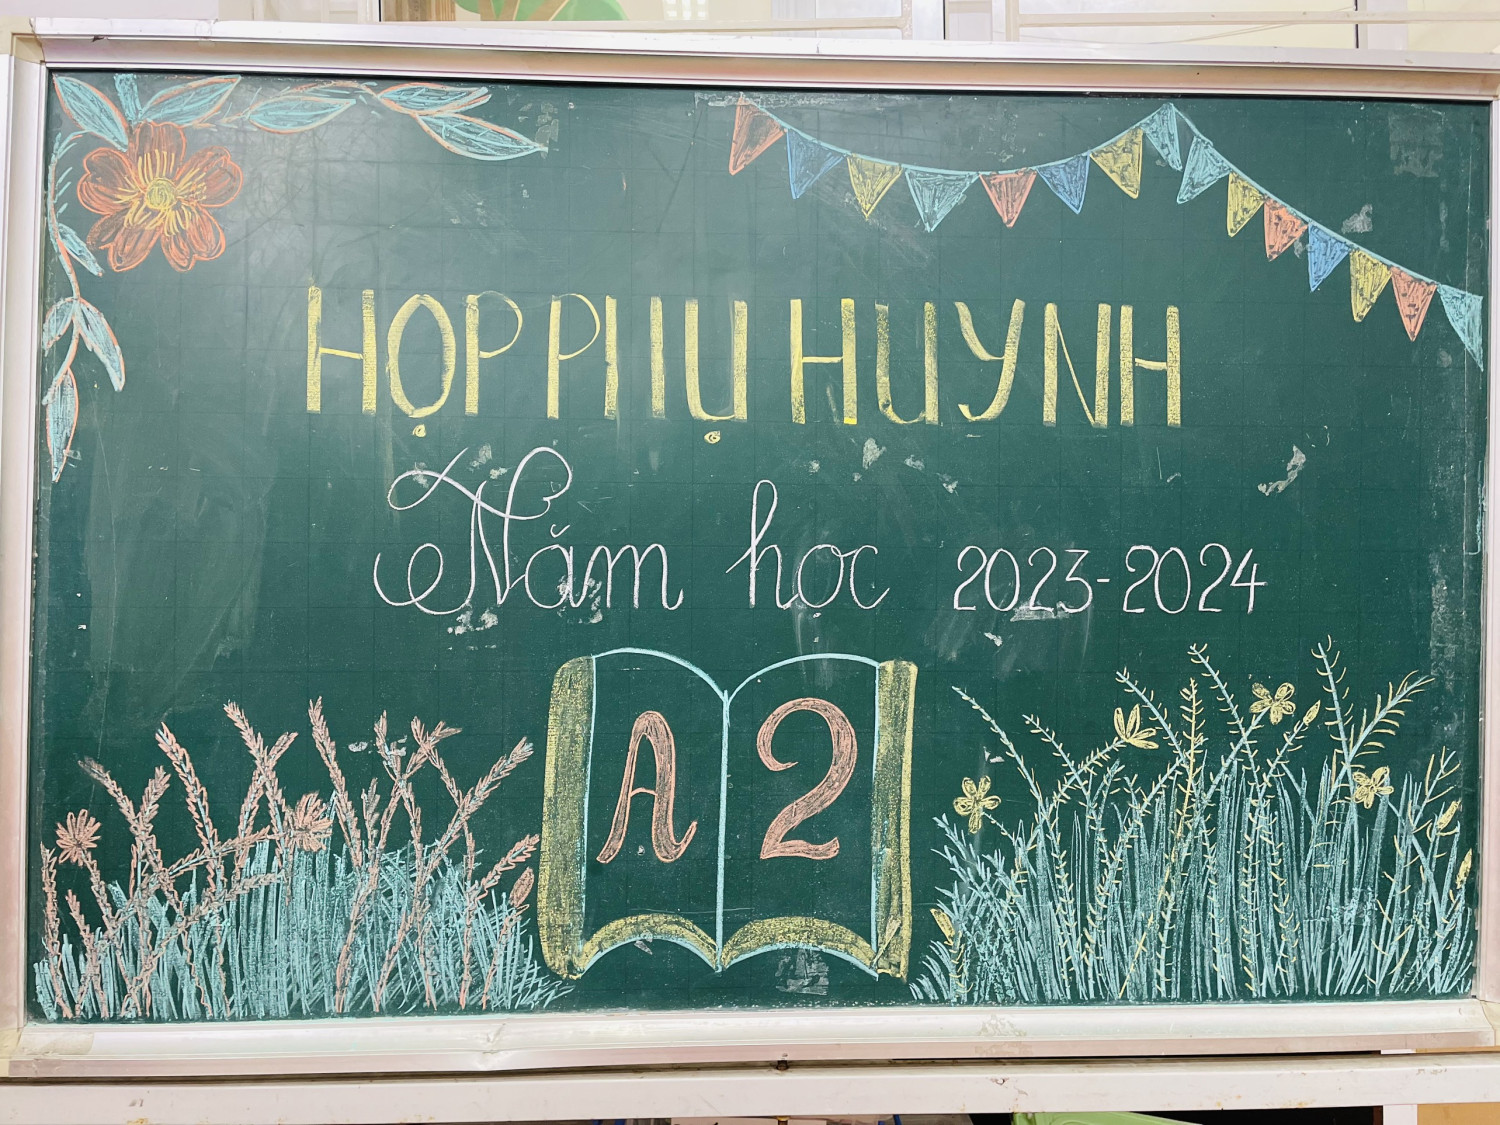 HỌP PHỤ HUYNH
Năm học 2023-2024
A2